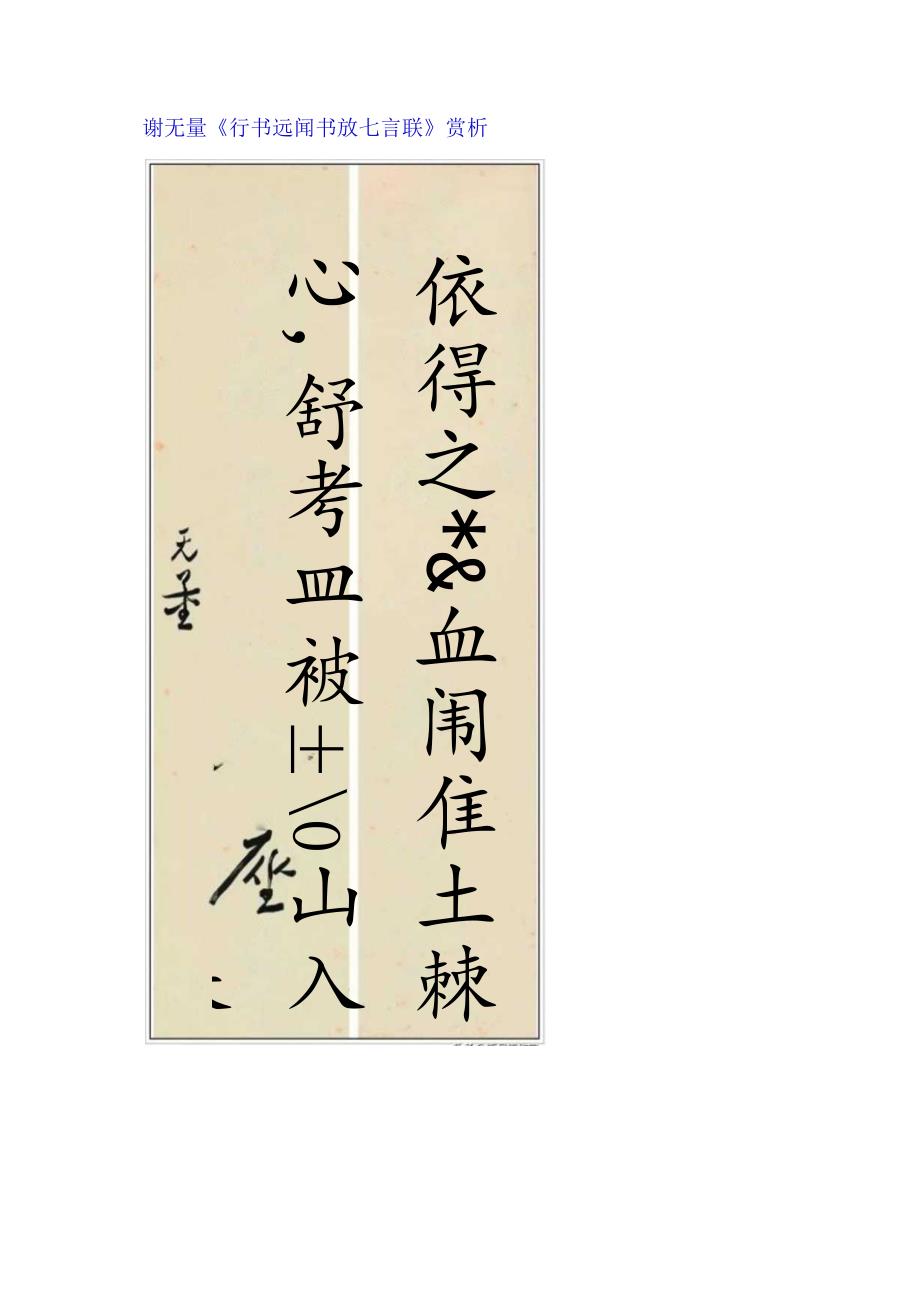 谢无量《行书远闻书放七言联》赏析
依得之*&血闹隹土棘
心,舒考皿被±\0山入
无量
座